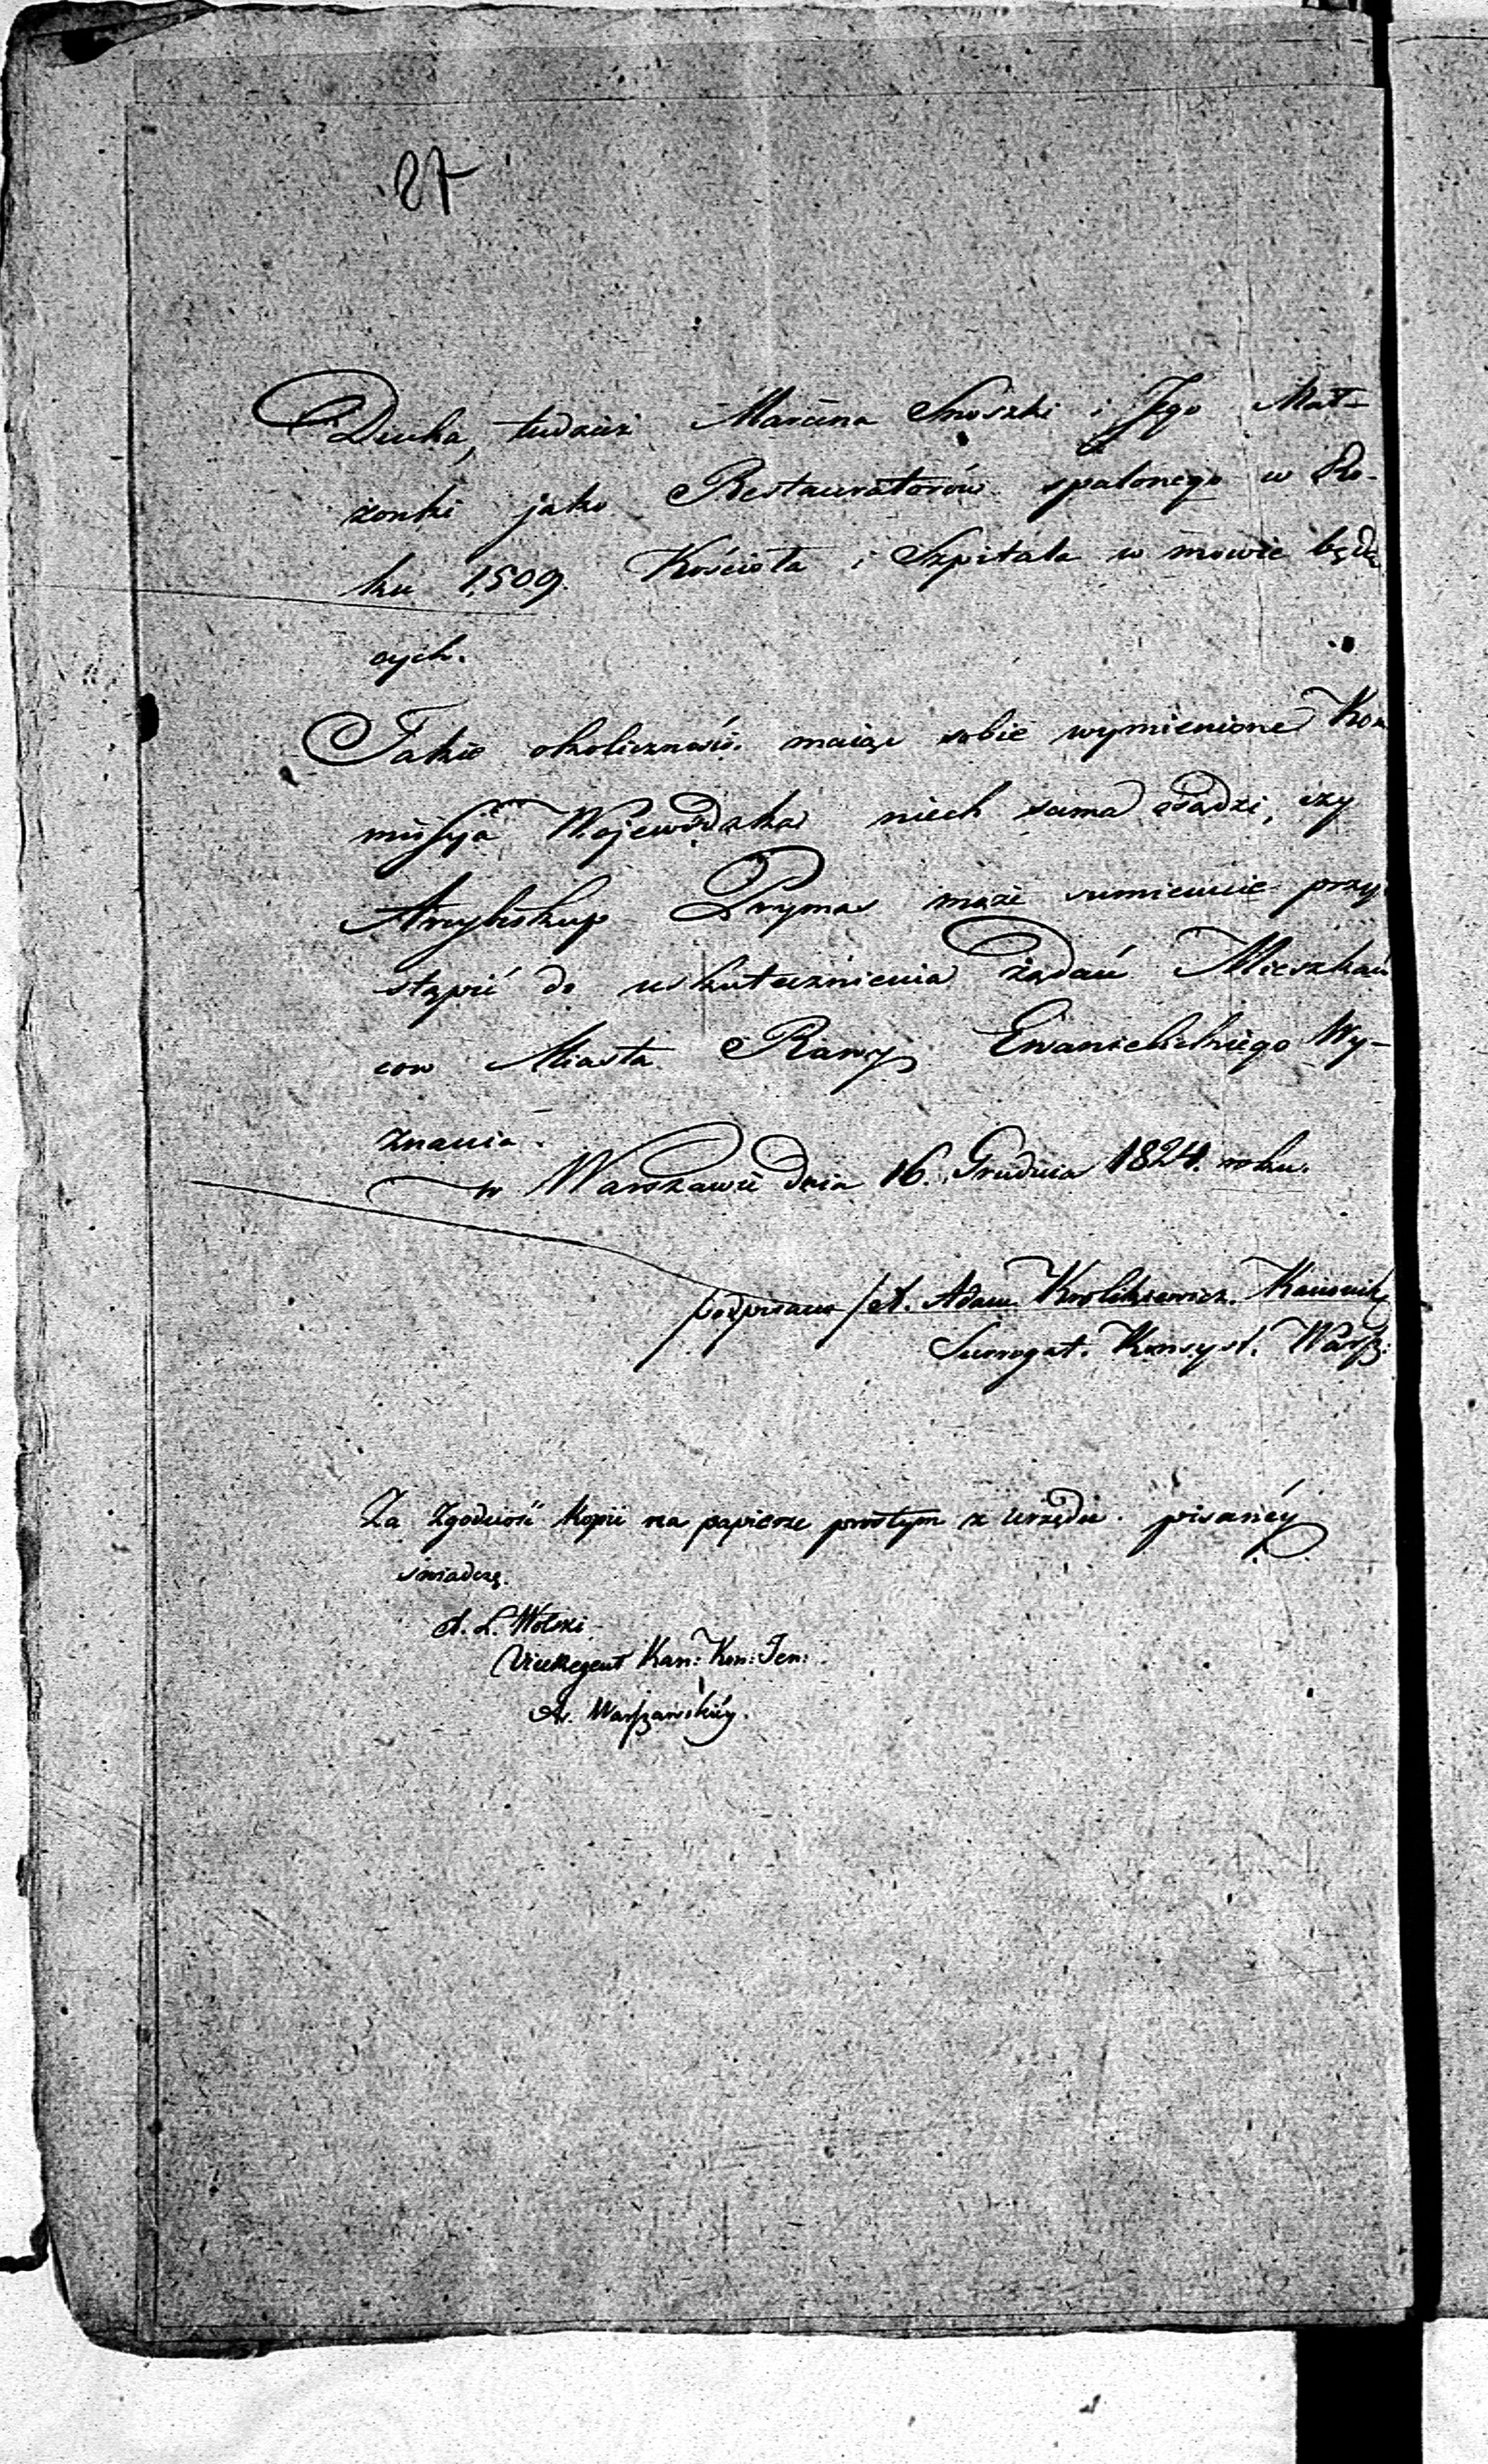 27
Ducha, tudzież Marcina Snoszki i Jego Mał-
żonki jako Restauratorów spalonego w Ro-
ku 1509. Kościoła i Szpitala w mowie będą
cych.
Takie okoliczności maiąc sobie wymienione Kom
missyja Woiewódzka niech sama osądzi, czy
Arcybiskup Prymas może sumiennie przy
stąpić do uskutecznienia żądań Mieszkań
cow Miasta Rawy Ewanielickiego Wy-
znania.
w Warszawie dnia 16. Grudnia 1824. roku.
podpisano /X. Adam Krolikiewicz. Kanonik
Surrogat. Konsyst. Warsz:
Za Zgodność kopii na papierze prostym z urzędu. pisanéy
świadczę.
X. L. Wolski
ViceRegent Kan: Kon: Jen:
Ar. Warszawskiéy.